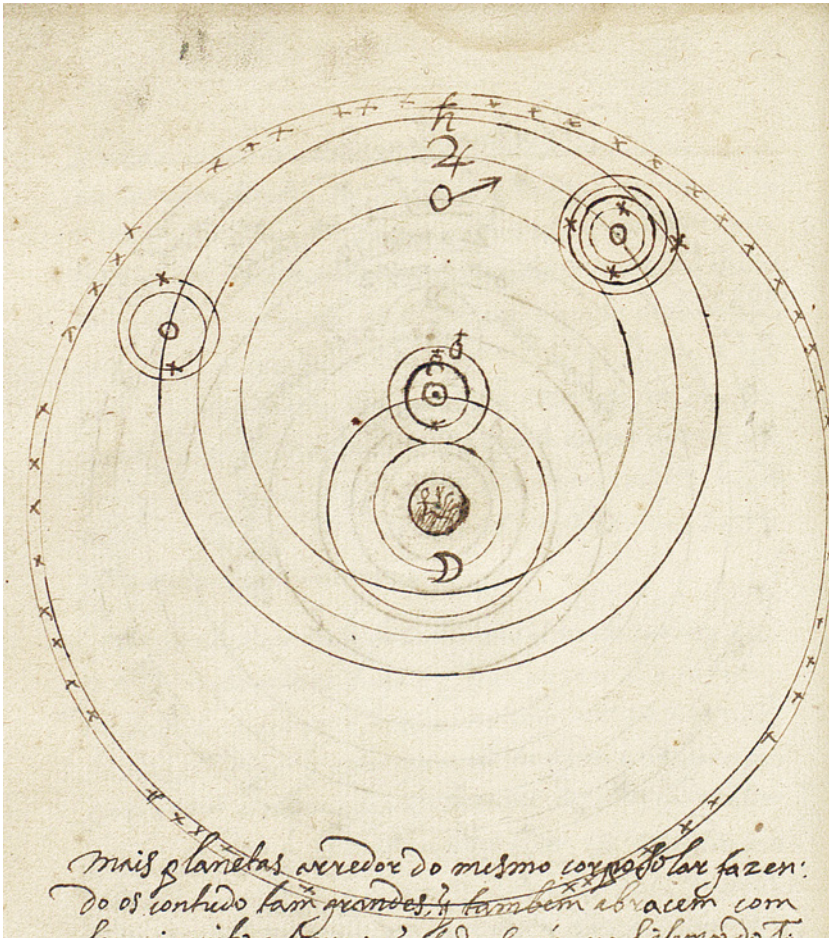 ♄
♃
♂
☿ ♀
☾
mais planetas arredor do mesmo corpo solar fazen:
do os contudo tam grandes, q̃ tambem abracem com